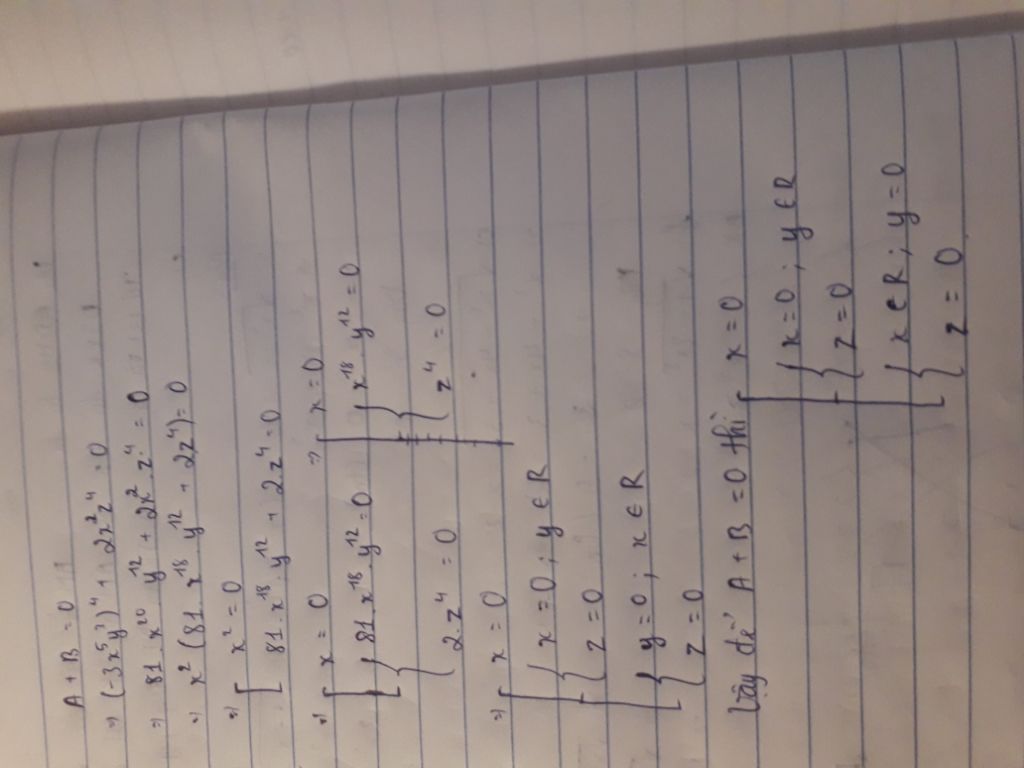 A + B = 0
=> (-3x⁵y³)⁴ + 2x²z⁴ = 0
=> 81 . x²⁰ . y¹² + 2x² . z⁴ = 0
=> x² (81 . x¹⁸ . y¹² + 2z⁴) = 0
=> [ x² = 0
81 . x¹⁸ . y¹² + 2z⁴ = 0
=> [ x = 0 => [ x = 0
{ 81 . x¹⁸ . y¹² = 0 { x¹⁸ . y¹² = 0
2 . z⁴ = 0 z⁴ = 0
=> [ x = 0
{ x = 0 ; y ∈ R
z = 0
{ y = 0 ; x ∈ R
z = 0
Vậy để A + B = 0 thì [ x = 0
{ x = 0 ; y ∈ R
z = 0
{ x ∈ R ; y = 0
z = 0